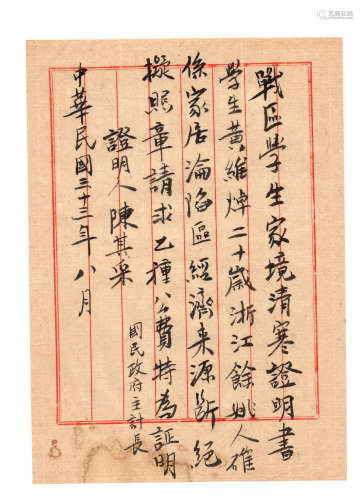 戰區學生家境清寒證明書
學生黃維焯二十歲浙江餘姚人確
係家居淪陷區經濟來源斷絕
擬照章請求乙種公費特為証明
證明人陳其采
國民政府主計長
中華民國三十三年八月